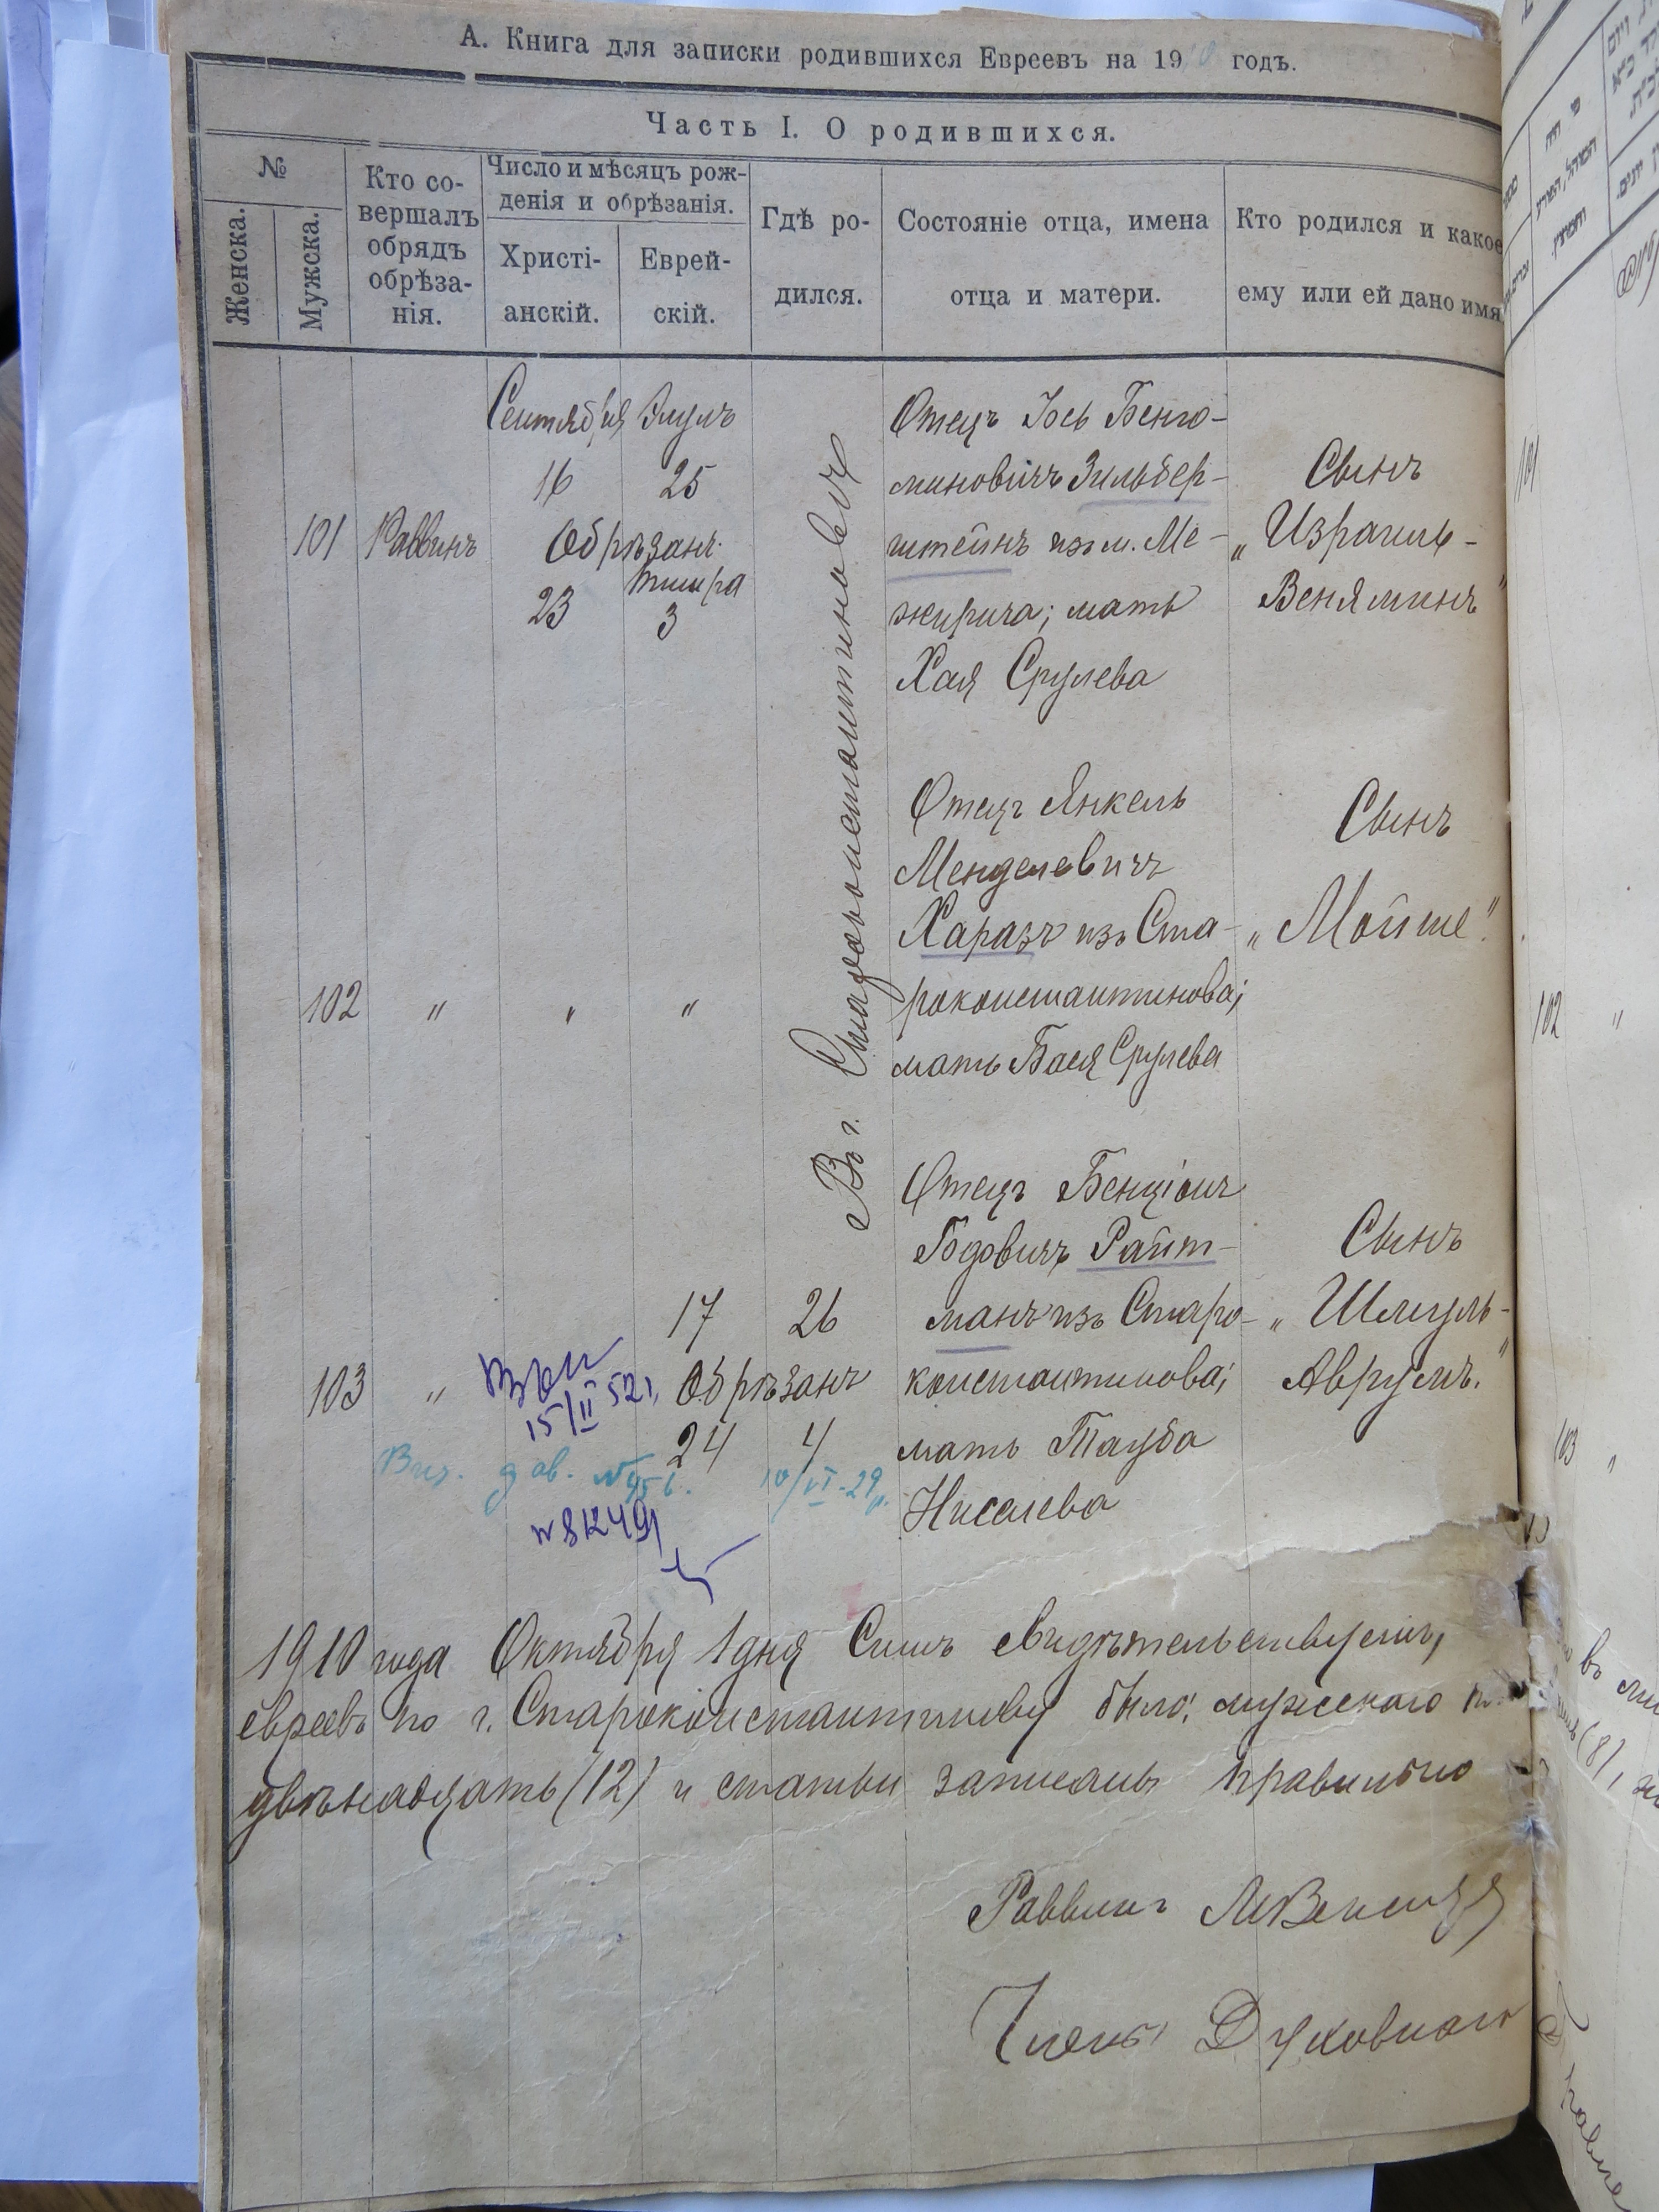 А. Книга для записки родившихся Евреевъ на 1910 годъ.
Часть I. О родившихся.
№
Женска.
Мужска.
Кто со-
вершалъ
обрядъ
обрѣза-
нія.
Число и мѣсяцъ рож-
денія и обрѣзанія.
Христі-
анскій.
Еврей-
скій.
Гдѣ ро-
дился.
Состояніе отца, имена
отца и матери.
Кто родился и какое
ему или ей дано имя
101
Раввинъ
Сентября Элулъ
16 25
Обрѣзанъ
Тишра
23 3
Въ г. Староконстантиновѣ
Отецъ Іось Бенъо-
миновичъ Зильбер-
штейнъ изъ м. Ме-
жирича; мать
Хая Срулева
Сынъ
„Израиль-
Веняминъ"
102 " " "
Отецъ Янкель
Менделевичъ
Харазъ изъ Ста-
роконстантинова;
мать Бася Срулева
Сынъ
„Мойше".
103 "
17 26
Обрѣзанъ
24 4
Отецъ Бенціонъ
Годовичъ Райт-
манъ изъ Старо-
константинова;
мать Тауба
Ниселева
Сынъ
„Шмуль-
Аврумъ."
15/II 52г.
Вид. дов. №
10/VI-29р.
1910 года Октября 1 дня Симъ свидѣтельствуемъ,
евреевъ по г. Староконстантинову было: мужскаго
двѣнадцать (12) и статьи записаны правильно
Раввинъ
Члены Духовнаго
101
102 "
103 "